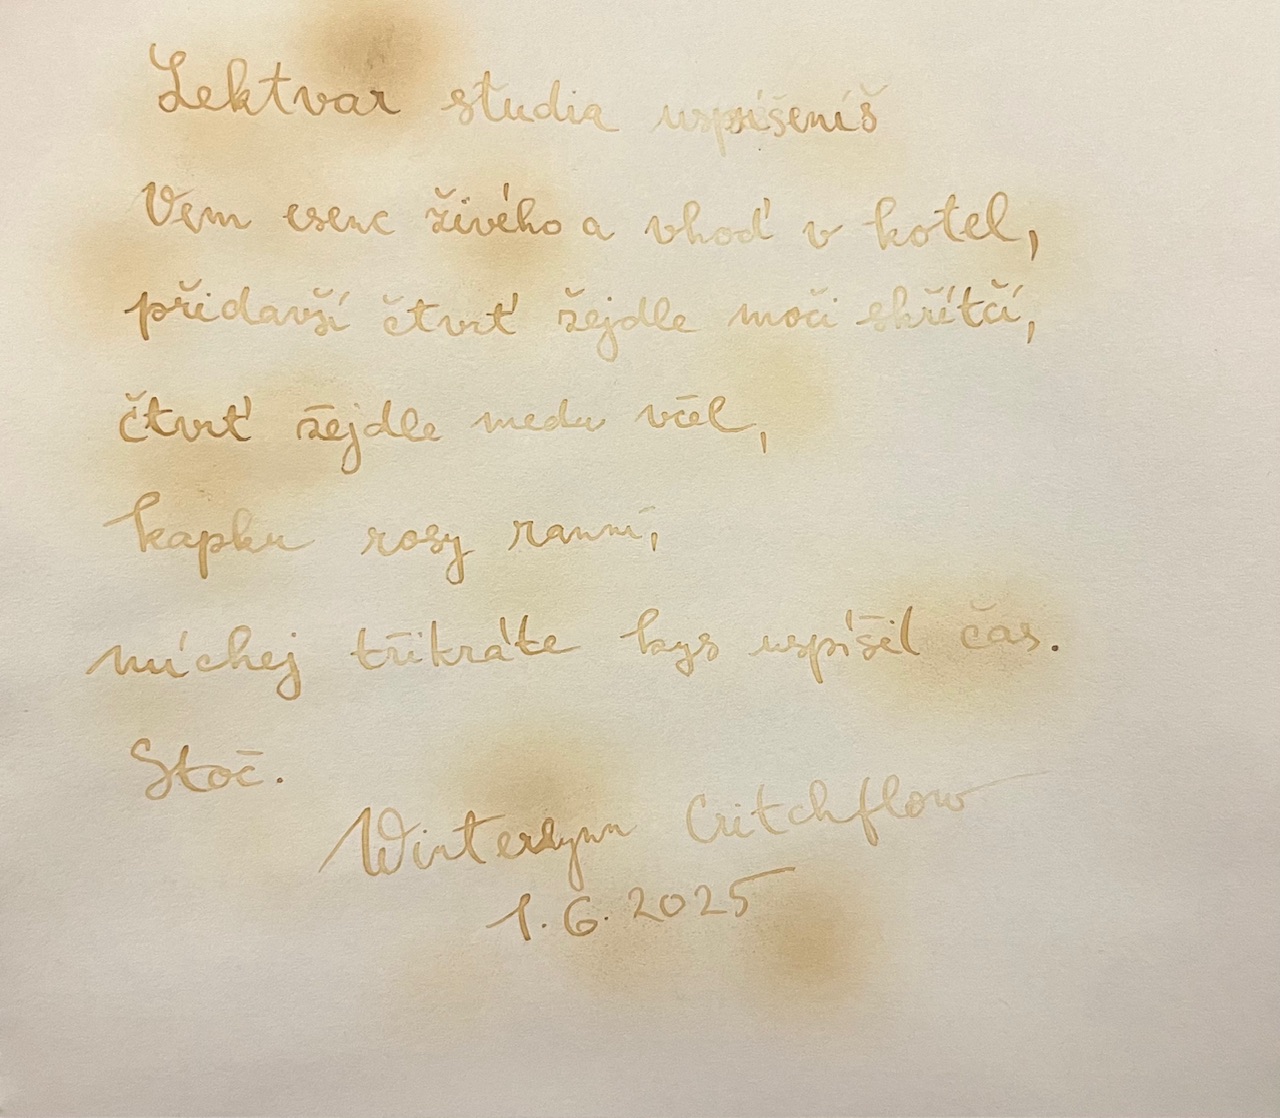 Lektvar studia uspíšeníš
Vem esenc živého a vhoď v kotel,
přidavší čtvrť žejdle moči skřítčí,
čtvrť žejdle medu včel,
kapku rosy ranní,
míchej třikráte bys uspíšil čas.
Stoč.
Winterlynn Critchflow
1.6.2025